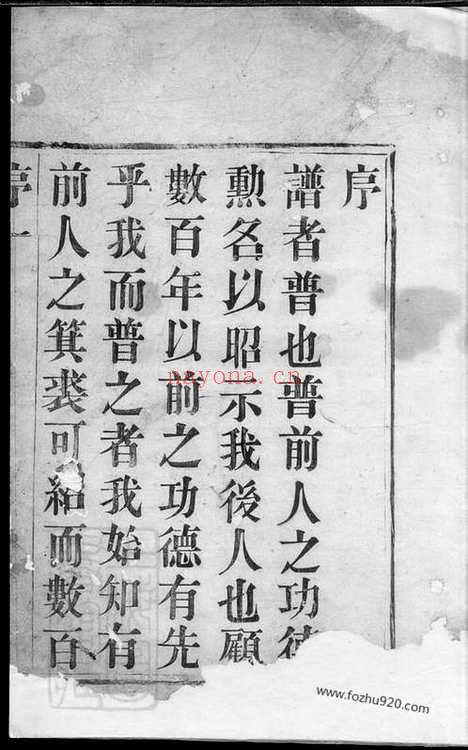 序
譜者普也普前人之功德
勲名以昭示我後人也顧
數百年以前之功德有先
乎我而普之者我始知有
前人之箕裘可紹而數百
序一
nayona.cn
www.fozhu920.com